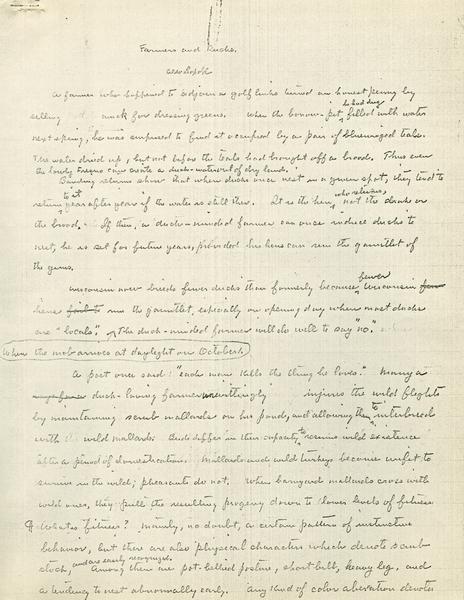 Farmers and Ducks.
Aldo Leopold
A farmer who happened to adjoin a golf links turned an honest penny by
selling muck for dressing greens. When the borrow-pit he had dug filled with water
next spring, he was surprised to find it occupied by a pair of bluewinged teals.
The water dried up, but not before the teals had brought off a brood. Thus even
the lowly Fresno can create a duck-nature out of dry land.
Banding returns show that when ducks once nest in a given spot, they tend to
return to it year after year if the water is still there. It is the hen who returns, not the drake or
the brood. If then, a duck-minded farmer can once induce ducks to
nest, he is set for future years, provided his hens can run the gauntlet of
the guns.
Wisconsin now breeds fewer ducks than formerly because fewer Wisconsin
hens run the gauntlet, especially on opening day when most ducks
are "locals". The duck-minded farmer will do well to say "no."
when the mob arrives at daylight on October 1.
A poet once said: "each man kills the thing he loves." Many a
duck-loving farmer unwittingly injures the wild flights
by maintaining scrub mallards on his pond, and allowing them to interbreed
with wild mallards. Ducks differ in their capacity to resume wild existence
after a period of domestication. Mallards and wild turkeys become unfit to
survive in the wild; pheasants do not. When barnyard mallards cross with
wild ones, they pull the resulting progeny down to lower levels of fitness.
¶ What is fitness? Mainly, no doubt, a certain pattern of instinctive
behavior, but there are also physical characters which denote scrub
stock, and are easily recognized. Among them are pot-bellied posture, short bill, heavy leg, and
a tendency to nest abnormally early. Any kind of color aberration denotes